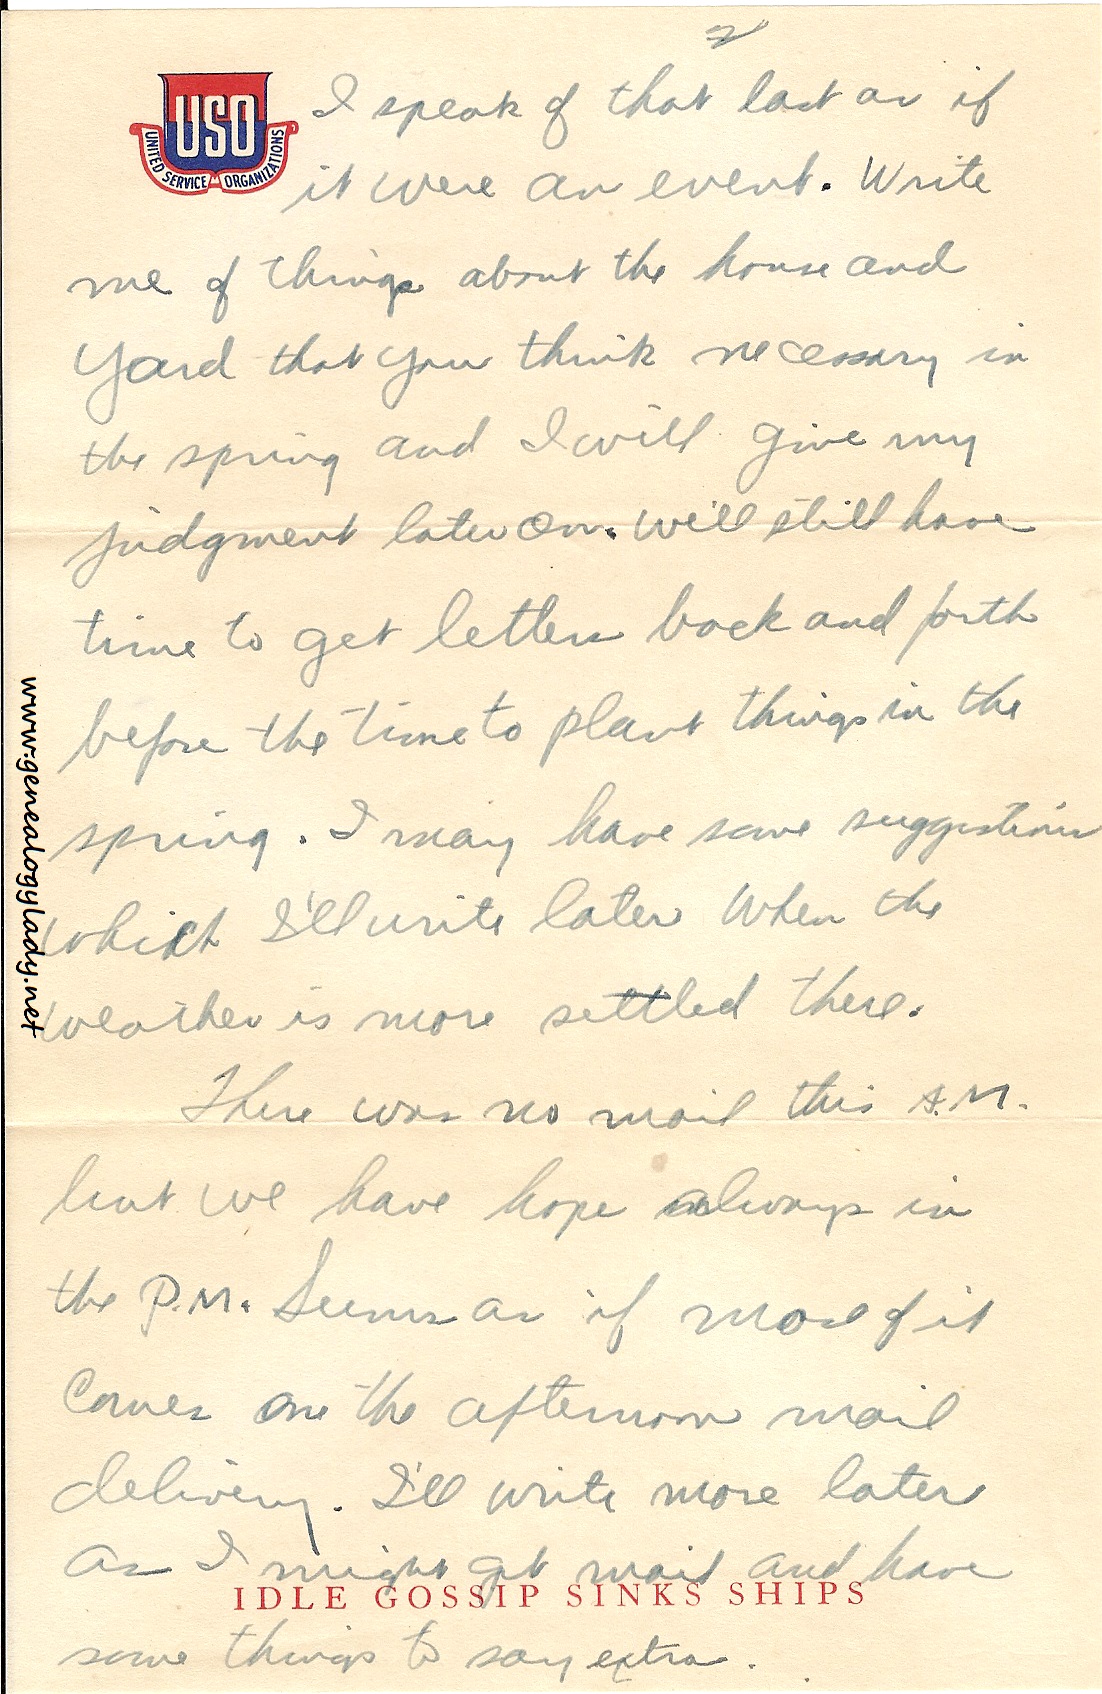 2
USO
UNITED SERVICE ORGANIZATIONS
I speak of that last as if
it were an event. Write
me of things about the house and
Yard that you think necessary in
the spring and I will give my
judgment later on. We'll still have
time to get letters back and forth
before the time to plant things in the
spring. I may have some suggestions
which I'll write later when the
weather is more settled there.
There was no mail this A.M.
but we have hope always in
the P.M. Seems as if most of it
comes on the afternoon mail
delivery. I'll write more later
as I might get mail and have
IDLE GOSSIP SINKS SHIPS
some things to say extra.
www.genealogylady.net